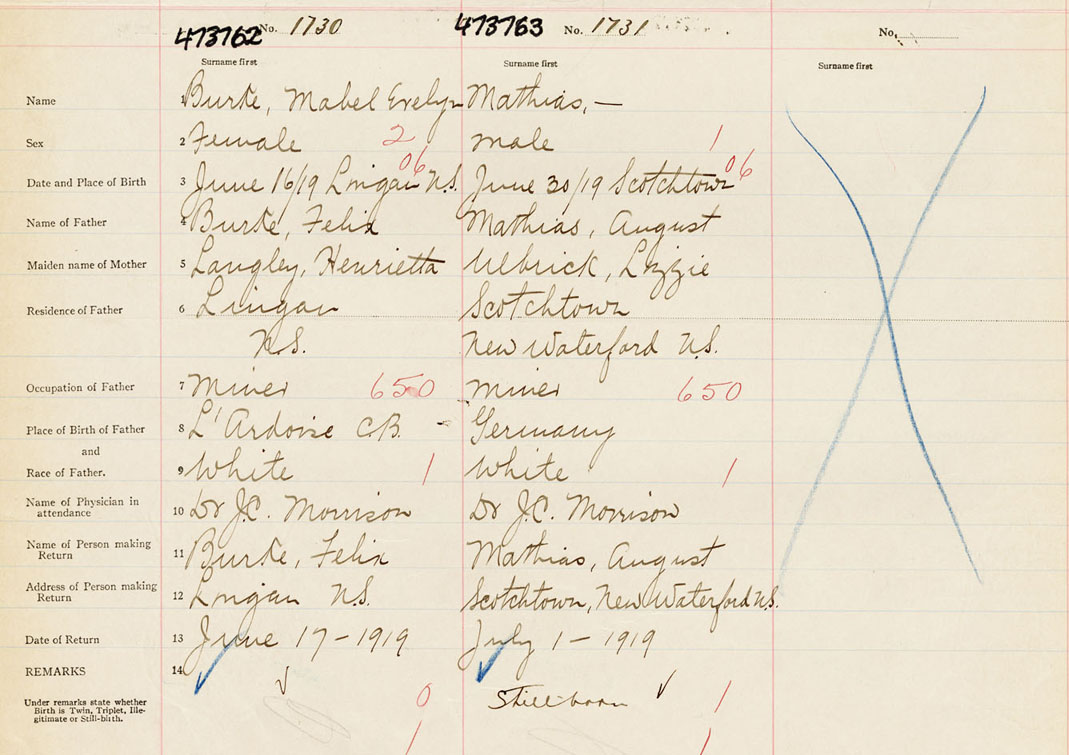 473762 No. 1730 473763 No. 1731 No.
Surname first Surname first Surname first
Name 1 Burke, Mabel Evelyn Mathias, —
Sex 2 Female 2 male 1
Date and Place of Birth 3 June 16/19 Lingan N.S. 06 June 30/19 Scotchtown 06
Name of Father 4 Burke, Felix Mathias, August
Maiden name of Mother 5 Langley, Henrietta Ulbrick, Lizzie
Residence of Father 6 Lingan Scotchtown
N.S. New Waterford N.S.
Occupation of Father 7 Miner 650 miner 650
Place of Birth of Father 8 L'Ardoise C.B. - Germany
and
Race of Father. 9 White 1 White 1
Name of Physician in
attendance 10 Dr J.C. Morrison Dr J.C. Morrison
Name of Person making
Return 11 Burke, Felix Mathias, August
Address of Person making
Return 12 Lingan N.S. Scotchtown, New Waterford N.S.
Date of Return 13 June 17-1919 July 1-1919
REMARKS 14
Under remarks state whether
Birth is Twin, Triplet, Ille-
gitimate or Still-birth. 0 Still-born 1
1 1